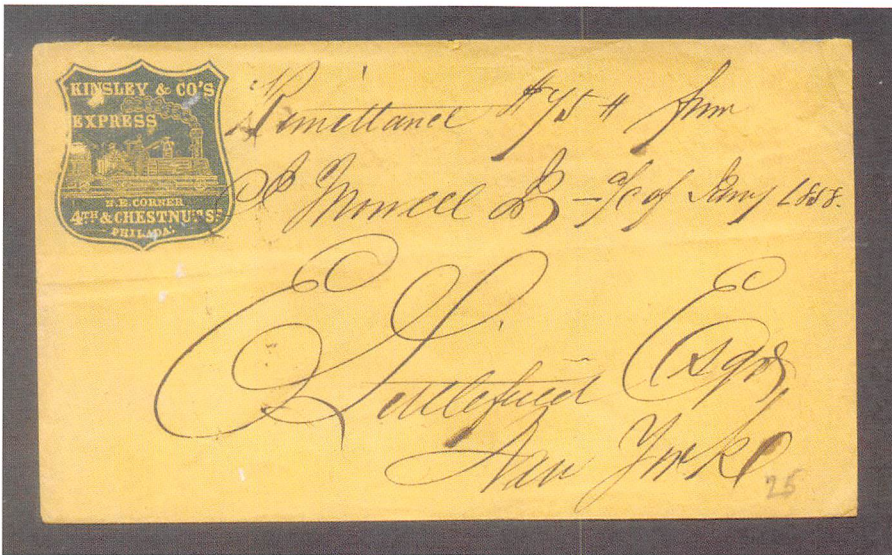 KINSLEY & CO'S
EXPRESS
N.E. CORNER
4TH & CHESTNUT STS
PHILADA.
Remittance $75 # from
Morrell Jr — a/c of Jany 1858.
E Littlefield Esqr
New York
25